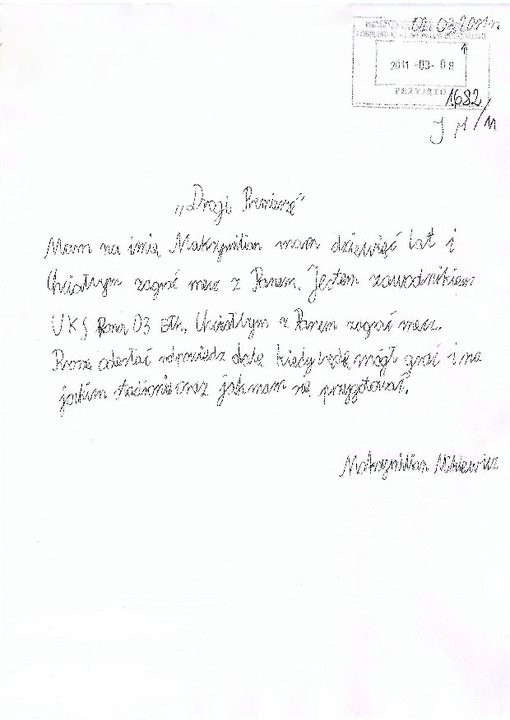 02.03.2011r.
2011 -03- 08
1682/
„Drogi Premierze"
Mam na imię Maksymilian mam dziewięć lat i
Chciałbym zagrać mecz z Panem. Jestem zawodnikiem
UKS 03 Chciałbym z Panem zagrać mecz.
Proszę odesłać odpowiedź datę kiedy będę mógł grać i na
jakim oraz jak mam się przygotować.
Maksymilian